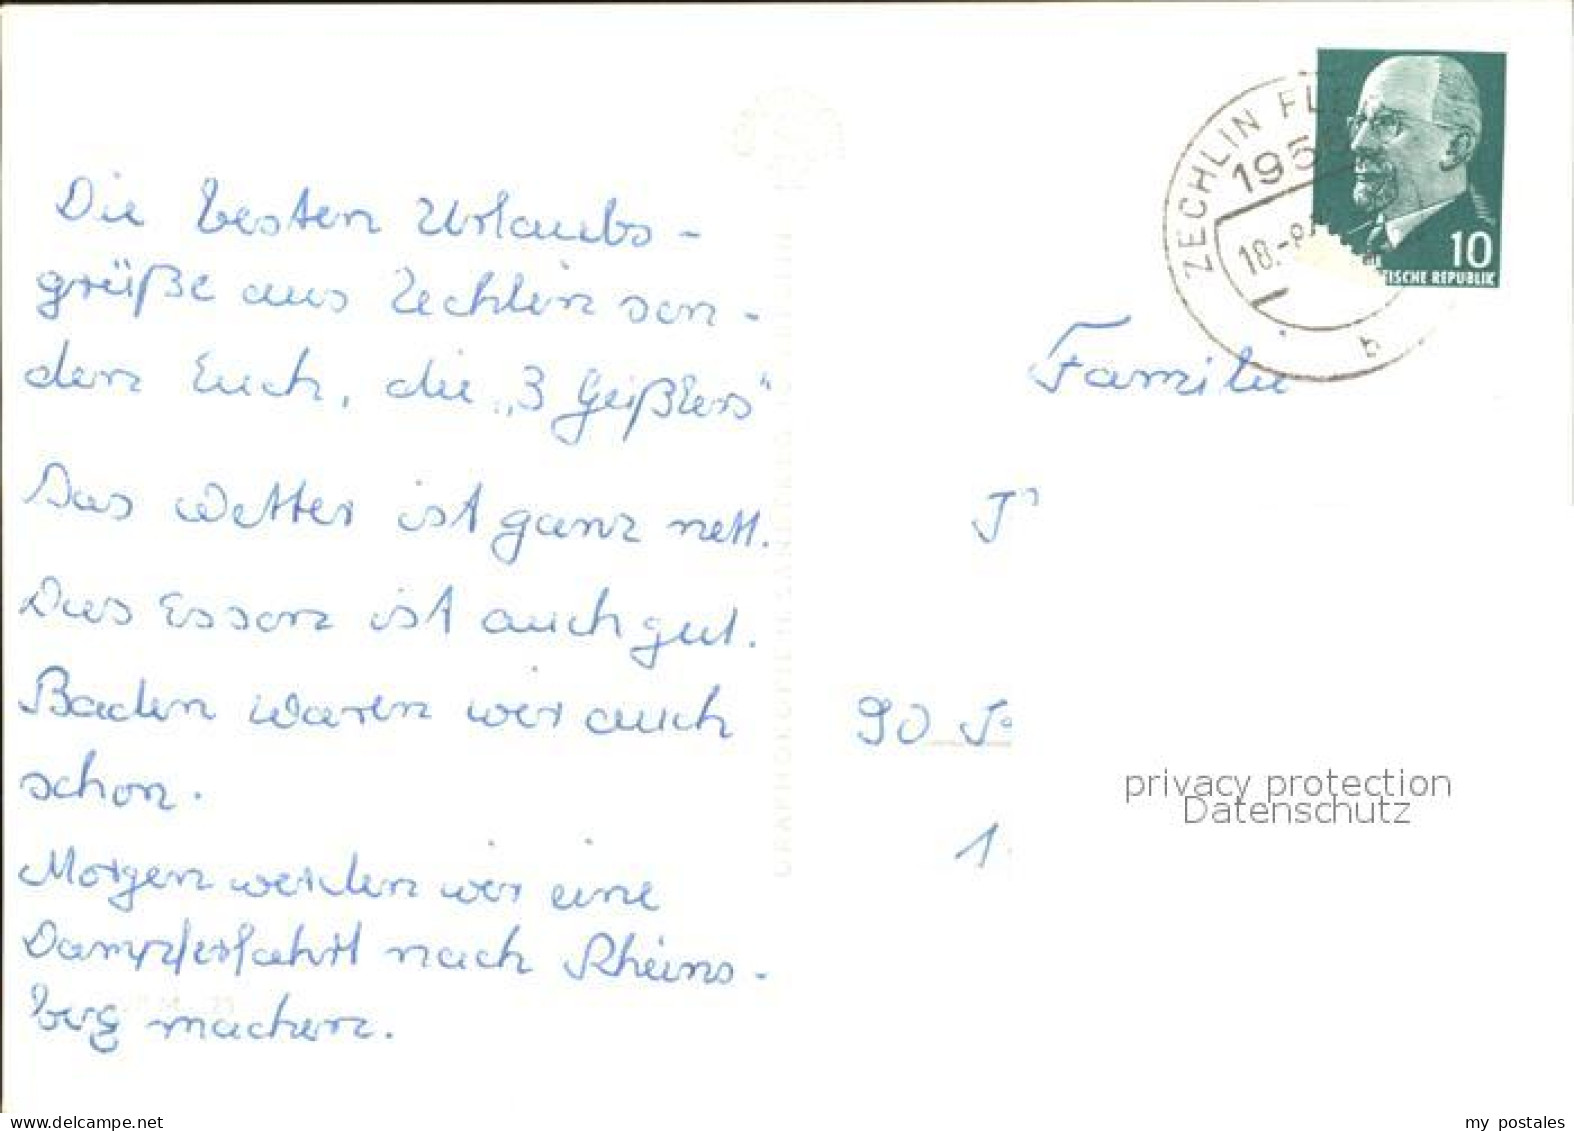 Die besten Urlaubs-
grüße aus Zechlin sen-
den Euch, die „3 Geißlers"
Das Wetter ist ganz nett.
Das Essen ist auch gut.
Baden waren wir auch
schon.
Morgen werden wir eine
Dampferfahrt nach Rheins-
berg machen.
ZECHLIN FL
195
18.-8.
b
10
TISCHE REPUBLIK
Familie
90
1
privacy protection
Datenschutz
my postales